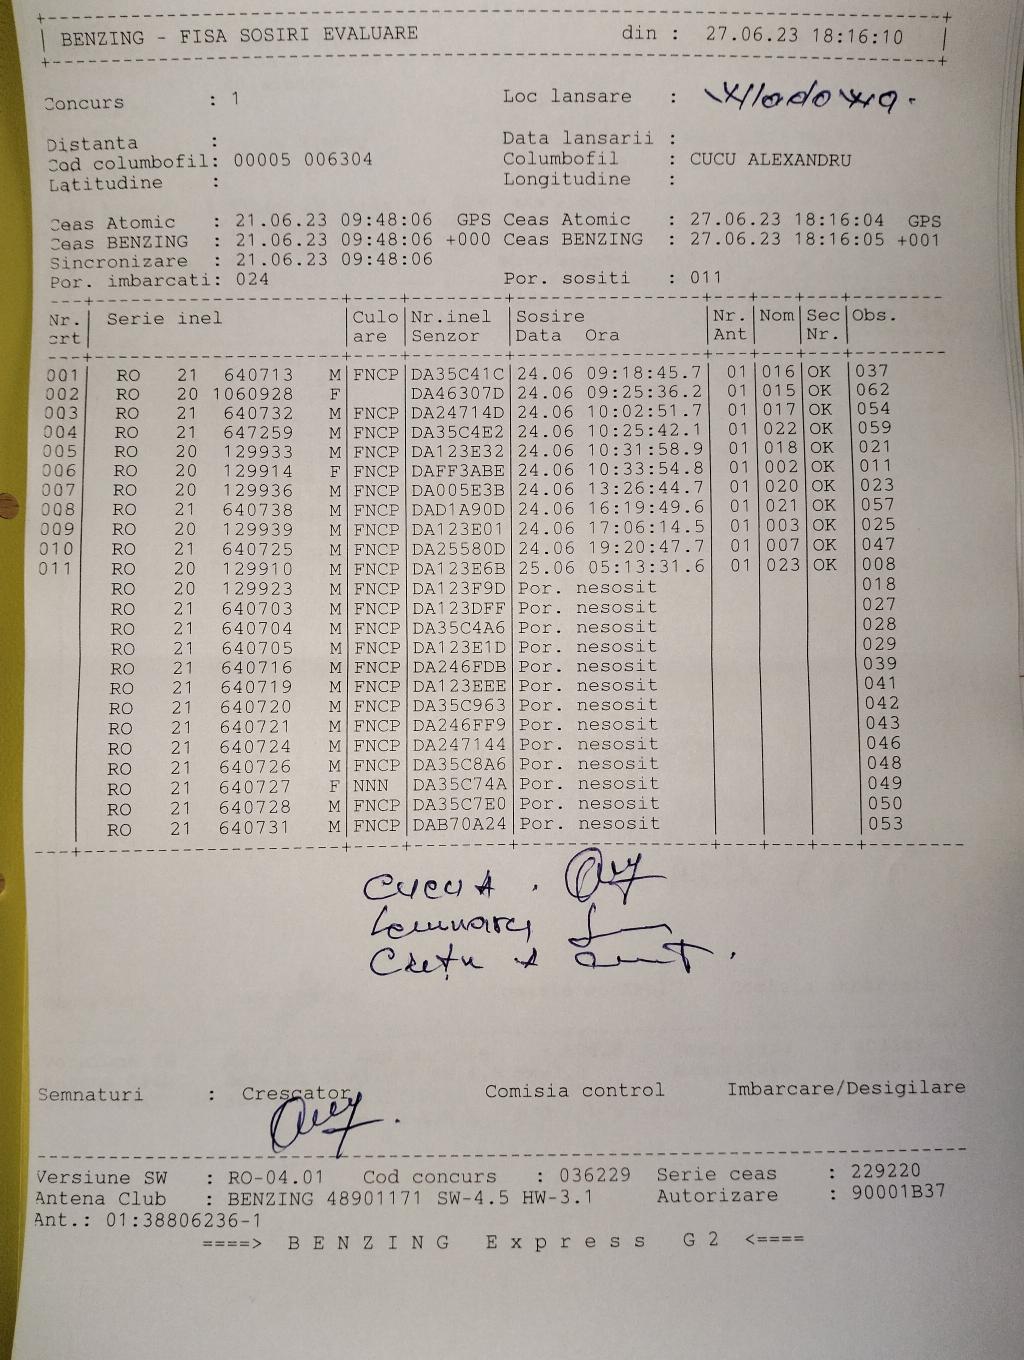 BENZING - FISA SOSIRI EVALUARE din : 27.06.23 18:16:10
Concurs : 1 Loc lansare : Wlodowa.
Distanta : Data lansarii :
Cod columbofil: 00005 006304 Columbofil : CUCU ALEXANDRU
Latitudine : Longitudine :
Ceas Atomic : 21.06.23 09:48:06 GPS Ceas Atomic : 27.06.23 18:16:04 GPS
Ceas BENZING : 21.06.23 09:48:06 +000 Ceas BENZING : 27.06.23 18:16:05 +001
Sincronizare : 21.06.23 09:48:06
Por. imbarcati: 024 Por. sositi : 011
Nr. Serie inel Culo Nr.inel Sosire Nr. Nom Sec Obs.
crt are Senzor Data Ora Ant Nr.
001 RO 21 640713 M FNCP DA35C41C 24.06 09:18:45.7 01 016 OK 037
002 RO 20 1060928 F DA46307D 24.06 09:25:36.2 01 015 OK 062
003 RO 21 640732 M FNCP DA24714D 24.06 10:02:51.7 01 017 OK 054
004 RO 21 647259 M FNCP DA35C4E2 24.06 10:25:42.1 01 022 OK 059
005 RO 20 129933 M FNCP DA123E32 24.06 10:31:58.9 01 018 OK 021
006 RO 20 129914 F FNCP DAFF3ABE 24.06 10:33:54.8 01 002 OK 011
007 RO 20 129936 M FNCP DA005E3B 24.06 13:26:44.7 01 020 OK 023
008 RO 21 640738 M FNCP DAD1A90D 24.06 16:19:49.6 01 021 OK 057
009 RO 20 129939 M FNCP DA123E01 24.06 17:06:14.5 01 003 OK 025
010 RO 21 640725 M FNCP DA25580D 24.06 19:20:47.7 01 007 OK 047
011 RO 20 129910 M FNCP DA123E6B 25.06 05:13:31.6 01 023 OK 008
RO 20 129923 M FNCP DA123F9D Por. nesosit 018
RO 21 640703 M FNCP DA123DFF Por. nesosit 027
RO 21 640704 M FNCP DA35C4A6 Por. nesosit 028
RO 21 640705 M FNCP DA123E1D Por. nesosit 029
RO 21 640716 M FNCP DA246FDB Por. nesosit 039
RO 21 640719 M FNCP DA123EEE Por. nesosit 041
RO 21 640720 M FNCP DA35C963 Por. nesosit 042
RO 21 640721 M FNCP DA246FF9 Por. nesosit 043
RO 21 640724 M FNCP DA247144 Por. nesosit 046
RO 21 640726 M FNCP DA35C8A6 Por. nesosit 048
RO 21 640727 F NNN DA35C74A Por. nesosit 049
RO 21 640728 M FNCP DA35C7E0 Por. nesosit 050
RO 21 640731 M FNCP DAB70A24 Por. nesosit 053
CUCU A.
Crețu A
Semnaturi : Crescator Comisia control Imbarcare/Desigilare
Versiune SW : RO-04.01 Cod concurs : 036229 Serie ceas : 229220
Antena Club : BENZING 48901171 SW-4.5 HW-3.1 Autorizare : 90001B37
Ant.: 01:38806236-1
====> B E N Z I N G E x p r e s s G 2 <====